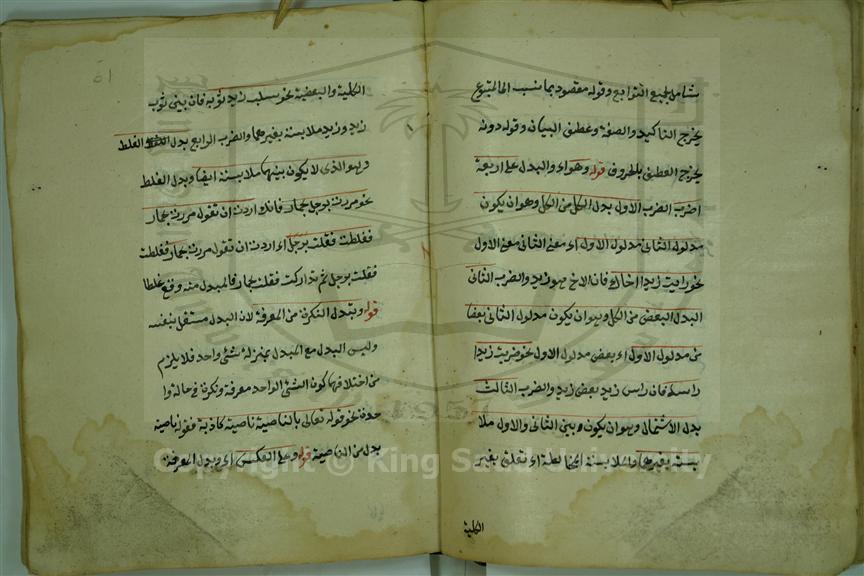 شامل لجميع التوابع وقوله مقصود بما نسب الى المتبوع
يخرج التاكيد والصفة وعطف البيان وقوله دونه
يخرج العطف بالحروف قوله وهو اء والبدل على اربعة
اضرب الضرب الاول بدل الكل من الكل وهو ان يكون
مدلول الثاني مدلول الاول اء معنى الثاني معنى الاول
نحو رايت زيدا اخاك فان الاخ هو زيد والضرب الثاني
البدل البعض من الكل وهو ان يكون مدلول الثاني بعضا
من مدلول الاول اء بعض مدلول الاول نحو ضربت زيدا
راسه فان راس زيد بعض زيد والضرب الثالث
بدل الاشتمال وهو ان يكون بين الثاني والاول ملا
بسة بغيرهما والملابسة المخالطة اء تعلق بغير
الكلية
٥١
الكلية والبعضية نحو سلب زيد ثوبه فان بين ثوب
زيد وزيد ملابسة بغيرهما والضرب الرابع بدل الغلط
وهو الذي لا يكون بينهما ملابسة ايضا وبدل الغلط
نحو مررت برجل حمار فانك اردت ان تقول مررت بحمار
فغلطت فقلت برجل اء اردت ان تقول مررت بحمار فغلطت
فقلت برجل ثم تداركت فقلت حمار فالمبدل منه وقع غلطا
قوله وتبدل النكرة من المعرفة لان البدل مستقل بنفسه
وليس البدل مع المبدل بمنزلة شئ واحد فلا يلزم
من اختلافهما كون الشئ الواحد معرفة ونكرة في حالة وا
حدة نحو قوله تعالى بالناصية ناصية كاذبة فقوله ناصية
بدل من الناصية قوله وعلى العكس اء وبدل المعرفة
Copyright © King Saud University
1957